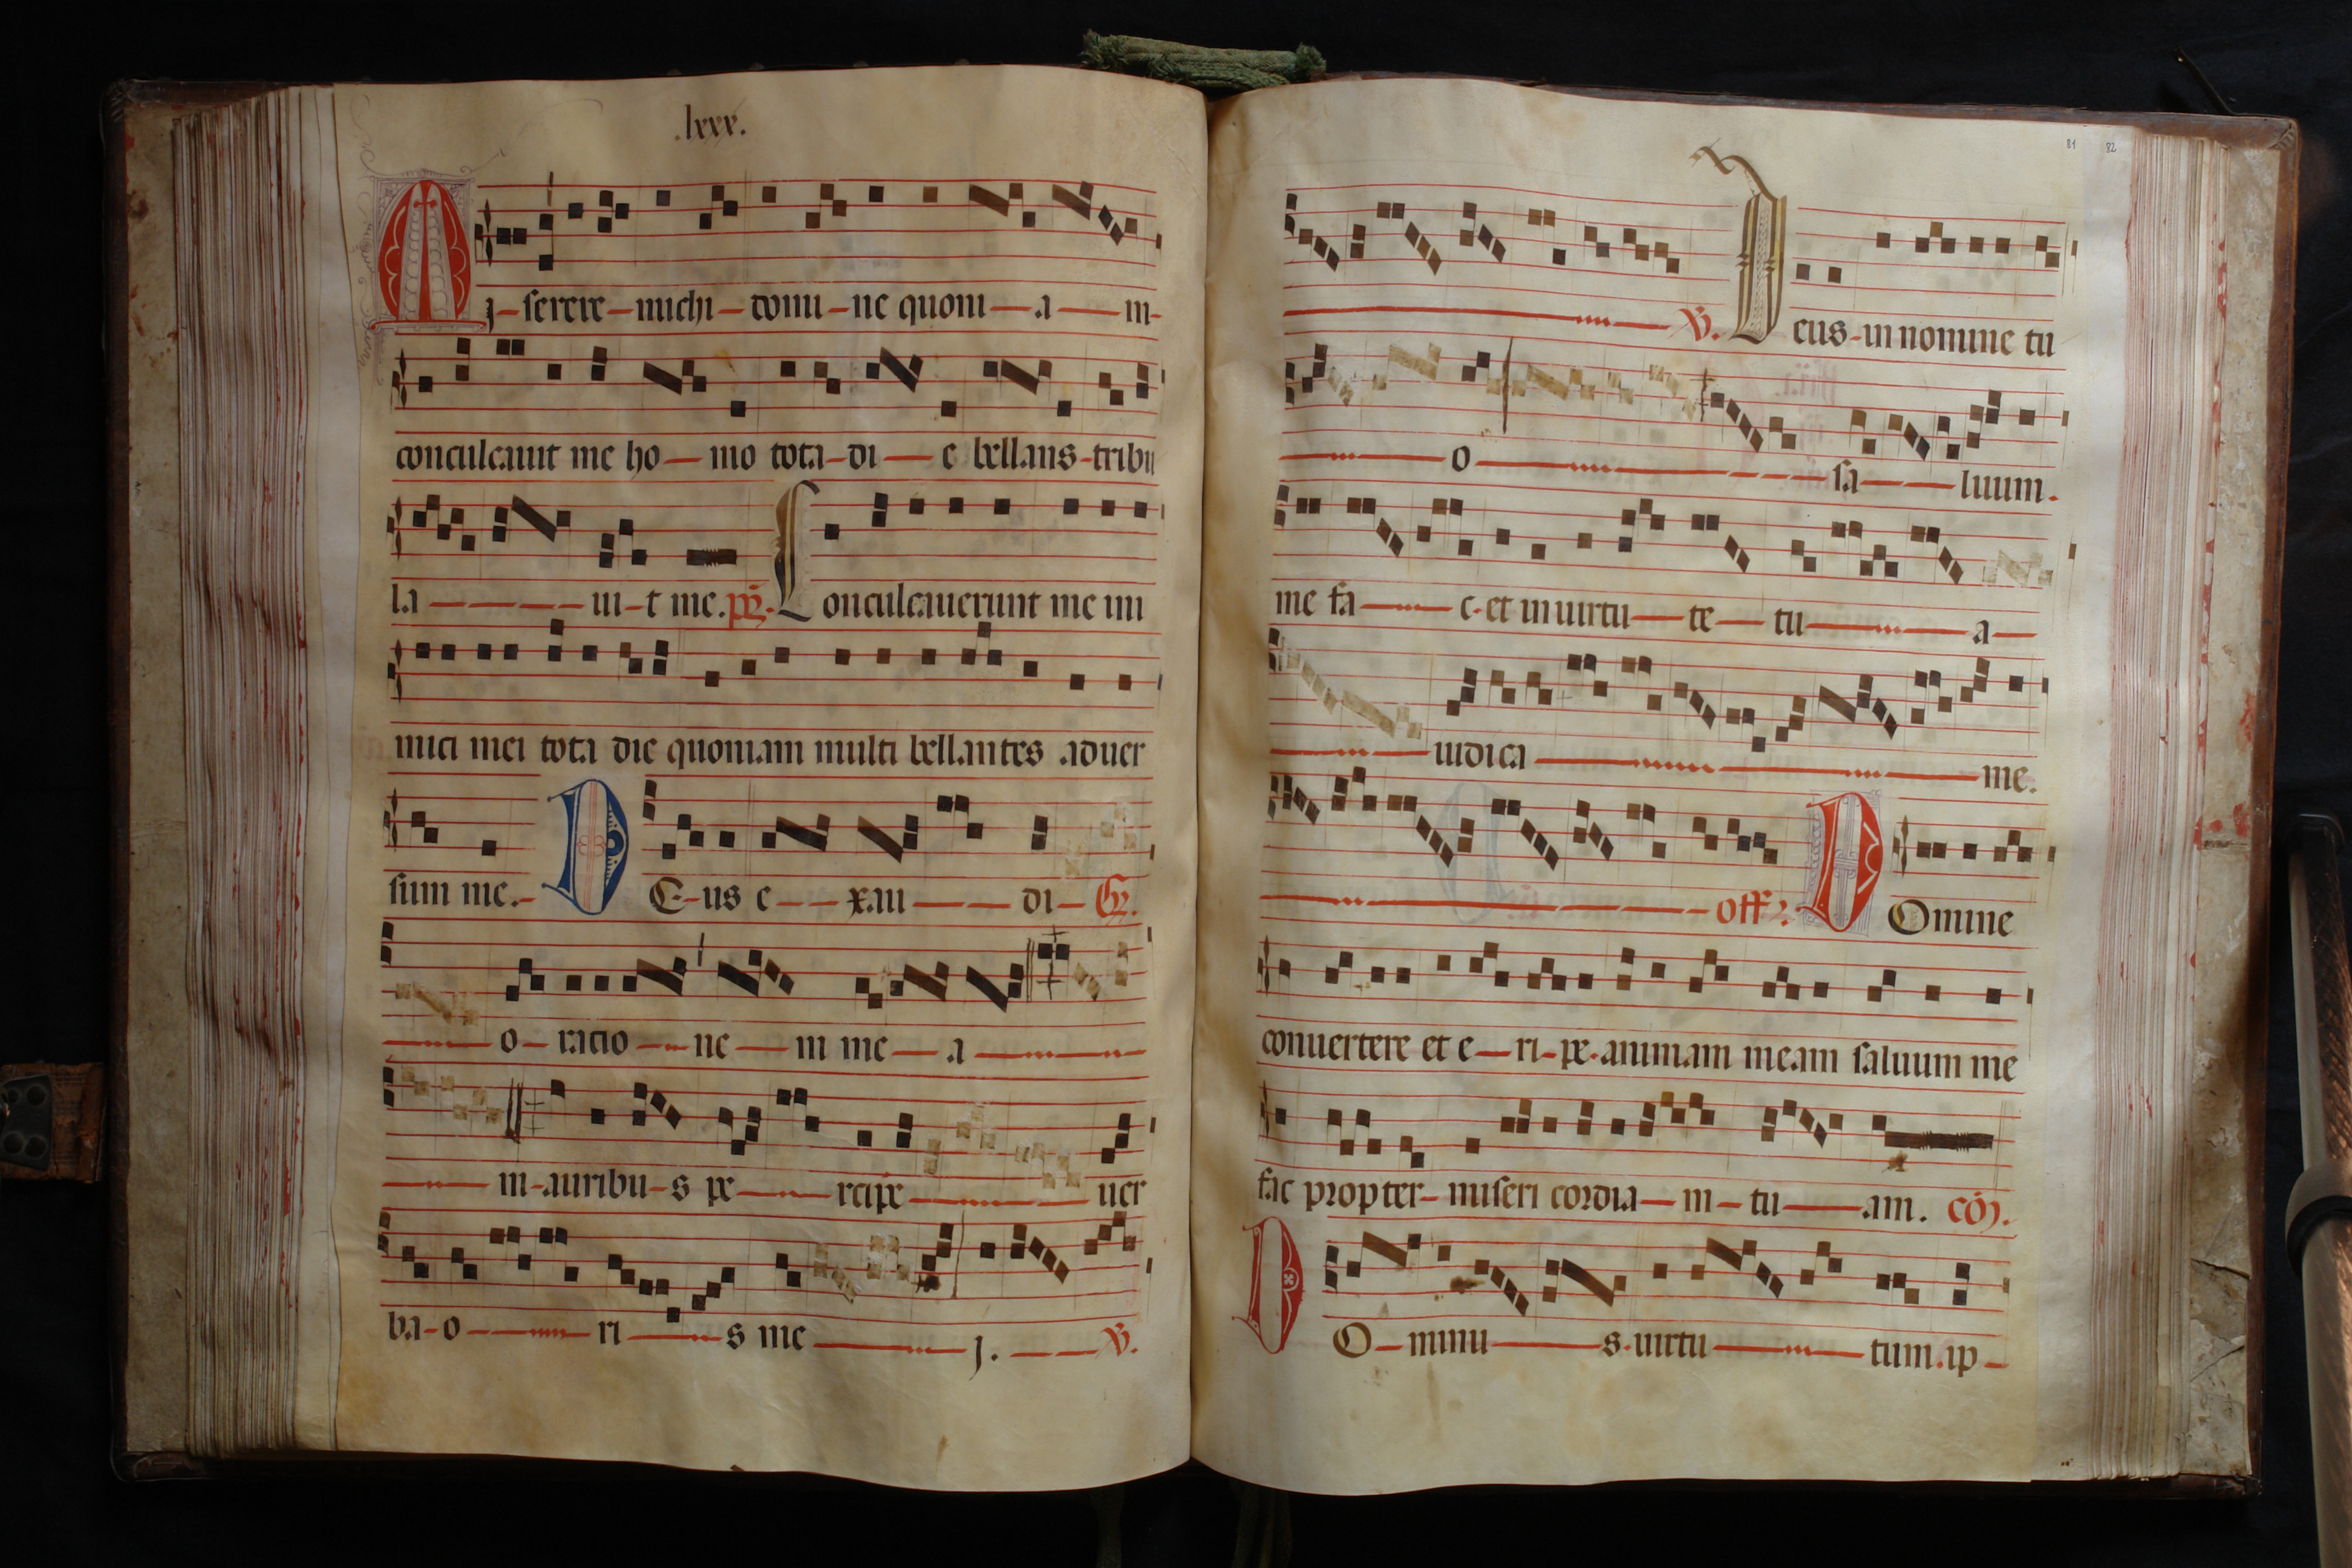 .lxxx.
Mj-serere-michi-domi-ne quoni-a-m-
conculcauit me ho-mo tota-di-e bellans-tribu
la-ui-t me. ps. Conculcauerunt me ini
mici mei tota die quoniam multi bellantes aduer
sum me.- DE-us e-xau-di- Gr.
o-racio-ne-m me-a-
m-auribu-s pe-rcipe-uer
ba-o-ri-s me-j. - V.
81 82
V. Deus-in nomine tu
o-sa-luum.
me fa-c-et in uirtu-te-tu-a-
iudica-me.
off. DOmine
conuertere et e-ri-pe-animam meam saluum me
fac propter-miseri cordia-m-tu-am. com.
DO-minu-s-uirtu-tum.ip-